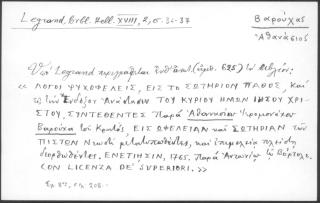 Legrand, Bibl. Hell. XVIII, 2, σ. 36-37
Βαρούχας
Ἀθανάσιος
Legrand περιγράφεται ἀριθμ. 625) τὸ βιβλίον:
« ΛΟΓΟΙ ΨΥΧΩΦΕΛΕΙΣ, ΕΙΣ ΤΟ ΣΩΤΗΡΙΟΝ ΠΑΘΟΣ, Καὶ
τὴν Ἔνδοξον Ἀνάστασιν ΤΟΥ ΚΥΡΙΟΥ ΗΜΩΝ ΙΗΣΟΥ ΧΡΙ-
ΣΤΟΥ. ΣΥΝΤΕΘΕΝΤΕΣ Παρὰ Ἀθανασίου Ἱερομονάχου
Βαρούχα τοῦ Κρητὸς, ΕΙΣ ΩΦΕΛΕΙΑΝ καὶ ΣΩΤΗΡΙΑΝ τῶν
ΠΙΣΤΩΝ Νεωστὶ μετατυπωθέντες, καὶ ἐπιμελείᾳ πλείστῃ
διορθωθέντες. ΕΝΕΤΙΗΣΙΝ, 1765. Παρὰ Ἀντωνίῳ τῷ Βόρτολι.
CON LICENZA DE' SUPERIORI. »